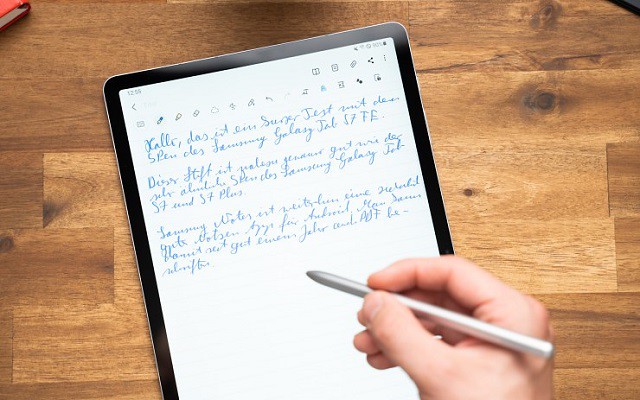 12:55
90%
Hallo, das ist ein kurzer Test mit dem
SPen des Samsung Galaxy Tab S7 FE.
Dieser Stift ist genauso gut wie der
sehr ähnliche SPen des Samsung Galaxy Tab
S7 und S7 Plus.
Samsung Notes ist weiterhin eine sehr
gute Notizen App für Android. Man kann
damit seit gut einem Jahr auch PDF be-
schriften.